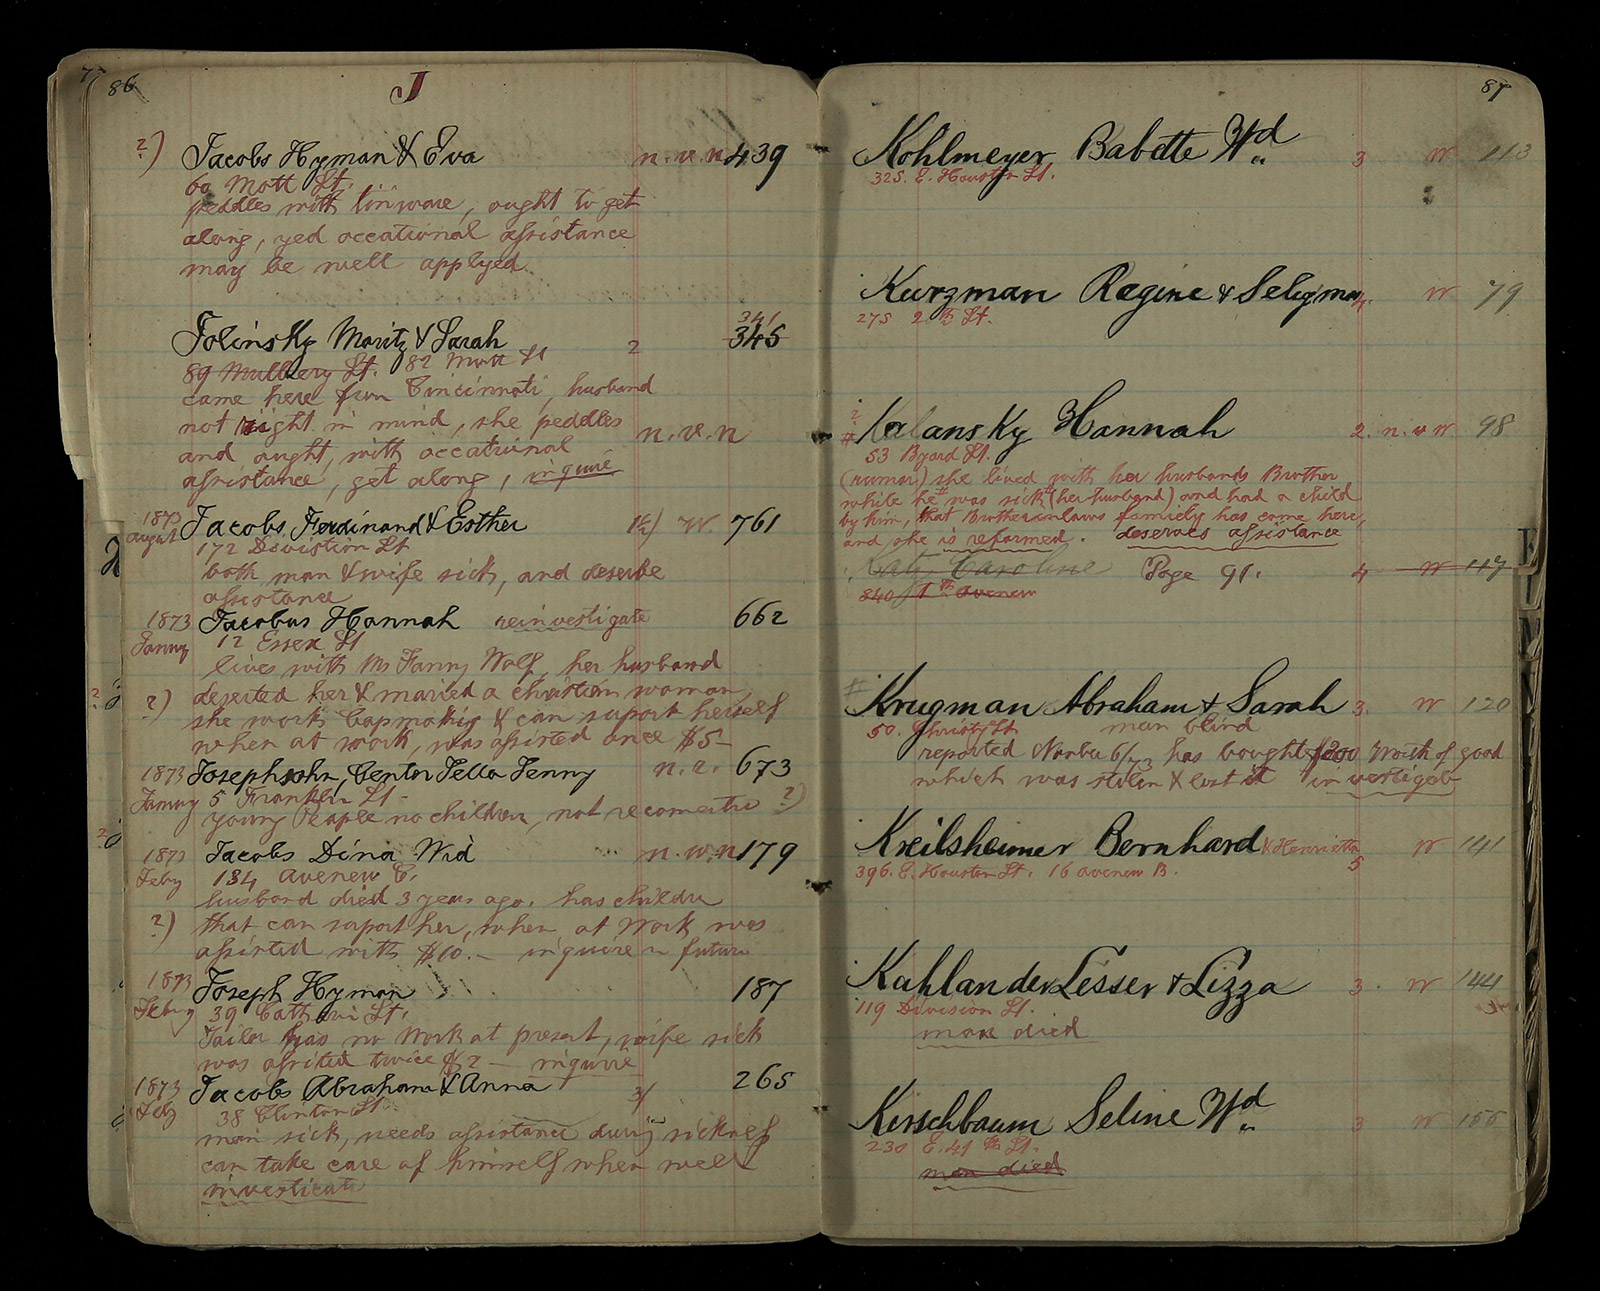 77 86 J
?) Jacobs Hyman & Eva n.v.n. 439
60 Mott St.
peddles with tinware, ought to get
along, yed occational assistance
may be well applyed.
341
Jolinsky Moritz & Sarah 2 345
89 Mulbery St. 82 Mott St
came here from Cincinnati, husband
not right in mind, she peddles n.v.n
and ought, with occational
assistance, get along, inquire
1873 Jacobs, Ferdinand & Esther 1½) W. 761
August 172 Divistion St
both man & wife sick, and deserve
assistance
1873 Jacobus Hannah reinvestigate 662
Janny 12 Essex St
lives with Ms Fanny Wolf, her husband
?) deserted her & maried a christien woman,
she works Capmakig & can suport herself
when at work, was assisted once $5–
1873 Josephsohn, Centor Jella Jenny n.r. 673
Janny 5 Franklin St –
young Peaple no children, not recomertu ?)
1873 Jacobs Dina Wid n.w.n 179
Feby 134 avenew C.
husband died 3 years ago. has childre
?) that can suport her, when at Work was
assisted with $10.– inquire in future
1873 Joseph Hyman 187
Feby 39 Cathrin St.
Tailor has no Work at present, wife sick
was assited twice $2 – inquire
1873 Jacobs Abraham & Anna 3/ 265
Feb 38 Clinton St.
man sick, needs assistance durig sickness
can take care of himself when well
investicate
87
Kohlmeyer, Babette Wd 3 W 113
325. E. Houston St.
Kurzman Regine & Seligman 4. W 79
275 2th St.
? # Kalansky Hannah 2. n.v W 98
53 Byard St.
(rumor) she lived with her husbands Brother
while he # was sick # (her husband) and had a child
by him, that Brotherinlaws familly has come here,
and she is reformed. deserves assistance
Katz Caroline Page 91. 4 W 117
840 1th avenew
# Krugman Abraham & Sarah 3. W 120
50. Christy St man blind
reported Novbr 6/73 has bought $200 Worth of good
which was stolen & lost it investigate
Kreilsheimer Bernhard & Henrietta W 141
396. E. Houston St. 16 avenew B. 5
Kahlander Lesser & Lizza 3. W 144
119 Division St.
man died
Kerschbaum Seline Wd 3 W 155
230 E. 41th St.
man died